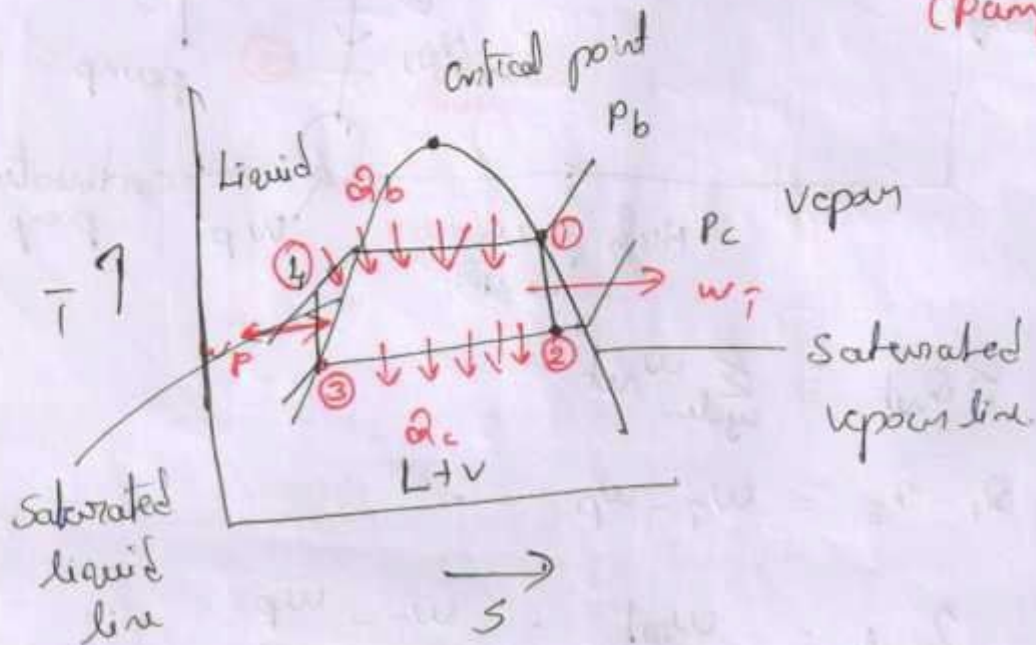 (Pum
critical point
Pb
Liquid
Qb
vapour
①
Pc
④
T
WT
P
②
Saturated
vapour line
③
Qc
L+V
Saturated
liquid
line
S